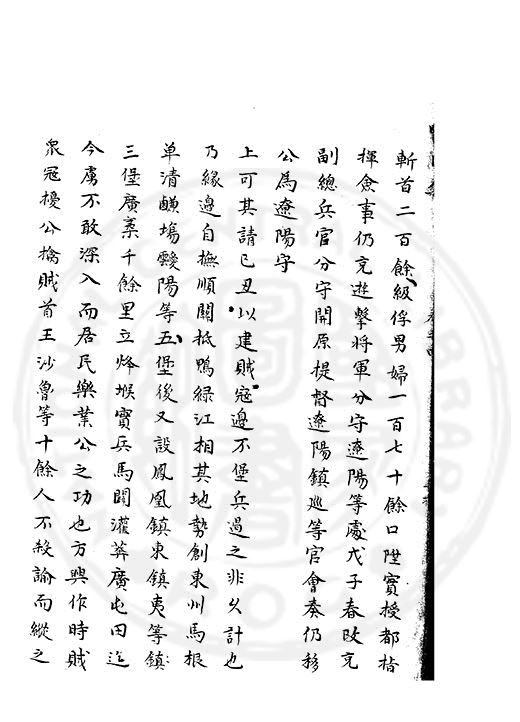 斬首二百餘級俘男婦一百七十餘口陞實授都指
揮僉事仍充遊擊將軍分守遼陽等處戊子春改充
副總兵官分守開原提督遼陽鎮巡等官會奏仍移
公為遼陽守
上可其請己丑以建賊寇邊不堡兵過之非久計也
乃緣邊自撫順關抵鴨綠江相其地勢創東州馬根
单清鹻塲靉陽等五堡後又設鳳凰鎮東鎮夷等鎮
三堡廣袤千餘里立烽堠實兵馬闢灌莽廣屯田迄
今虜不敢深入而居民樂業公之功也方興作時賊
衆寇擾公擒賊首王沙魯等十餘人不殺諭而縱之